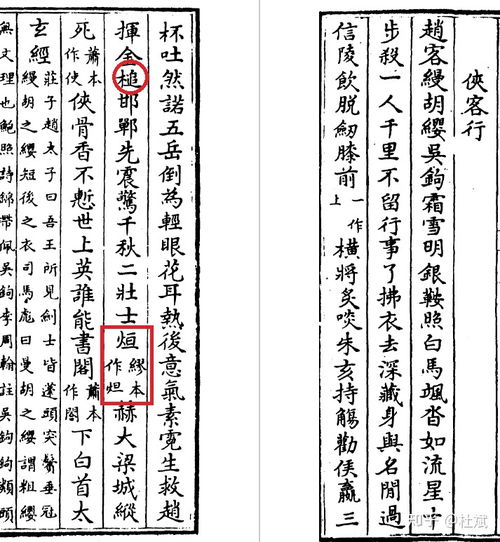 俠客行
趙客縵胡纓吳鉤霜雪明銀鞍照白馬颯沓如流星十
步殺一人千里不留行事了拂衣去深藏身與名閒過
信陵飲脫劒膝前一作上橫將炙啖朱亥持觴勸侯嬴三
杯吐然諾五岳倒為輕眼花耳熱後意氣素霓生救趙
揮金槌邯鄲先震驚千秋二壯士烜繆本作炟赫大梁城縱
死蕭本作使俠骨香不慙世上英誰能書閣蕭本作閤下白首太
玄經莊子趙太子曰吾王所見劍士皆蓬頭突鬢垂冠
縵胡之纓短後之衣司馬彪曰曼胡之纓謂粗纓
無文理也鮑照詩錦帶佩吳鉤李周翰註吳鉤鉤類頭
知乎 @杜斌